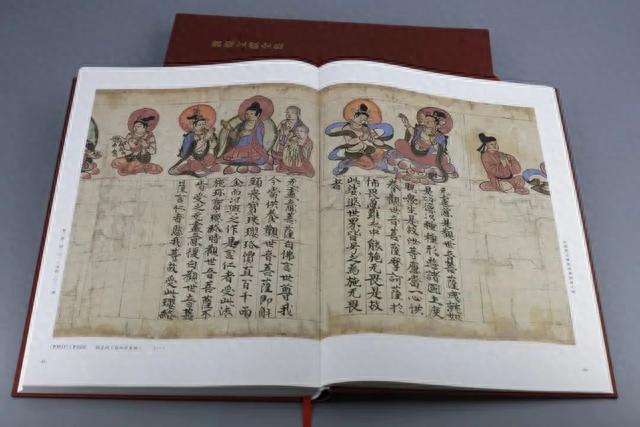 无盡意是觀世音菩薩成就如
是功德以種種形遊諸國土度
脫衆生是故汝等應當一心供
養觀世音菩薩摩訶薩於
怖畏急難之中能施无畏是故
此娑婆世界皆号之爲施无畏
者
无盡意菩薩白佛言世尊我
今當供養觀世音菩薩即解
頸衆寶珠瓔珞價直百千兩
金而以與之作是言仁者受此法
施珍寶瓔珞時觀世音菩薩不
肯受之无盡意復白觀世音菩
薩言仁者愍我等故受此瓔珞